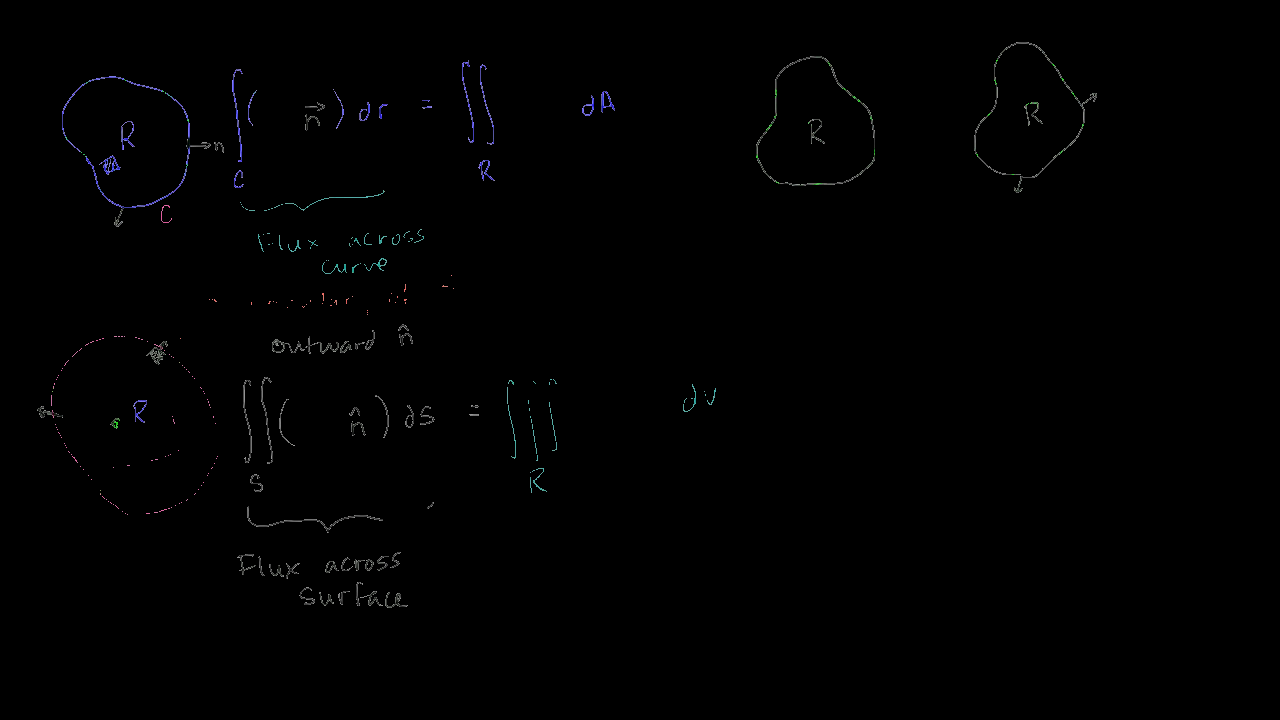 R n C
∫ ( n⃗ ) dr = ∬ dA
C R
Flux across
curve
outward n̂
R
∬ ( n̂ ) dS = ∭ dV
S R
Flux across
surface
R
R